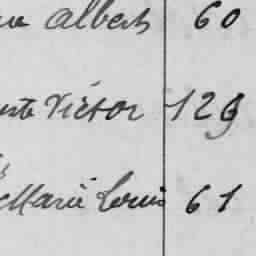 Albert 60
Victor 129
Marie Louis 61